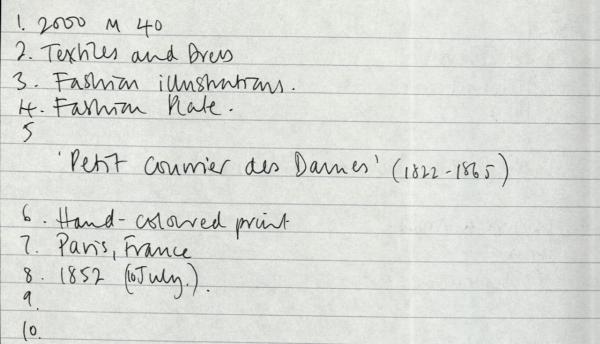 1. 2000 M 40
2. Textiles and Dress
3. Fashion illustrations.
4. Fashion Plate.
5
'Petit Courrier des Dames' (1822-1865)
6. Hand-coloured print
7. Paris, France
8. 1852 (10 July.).
9.
10.